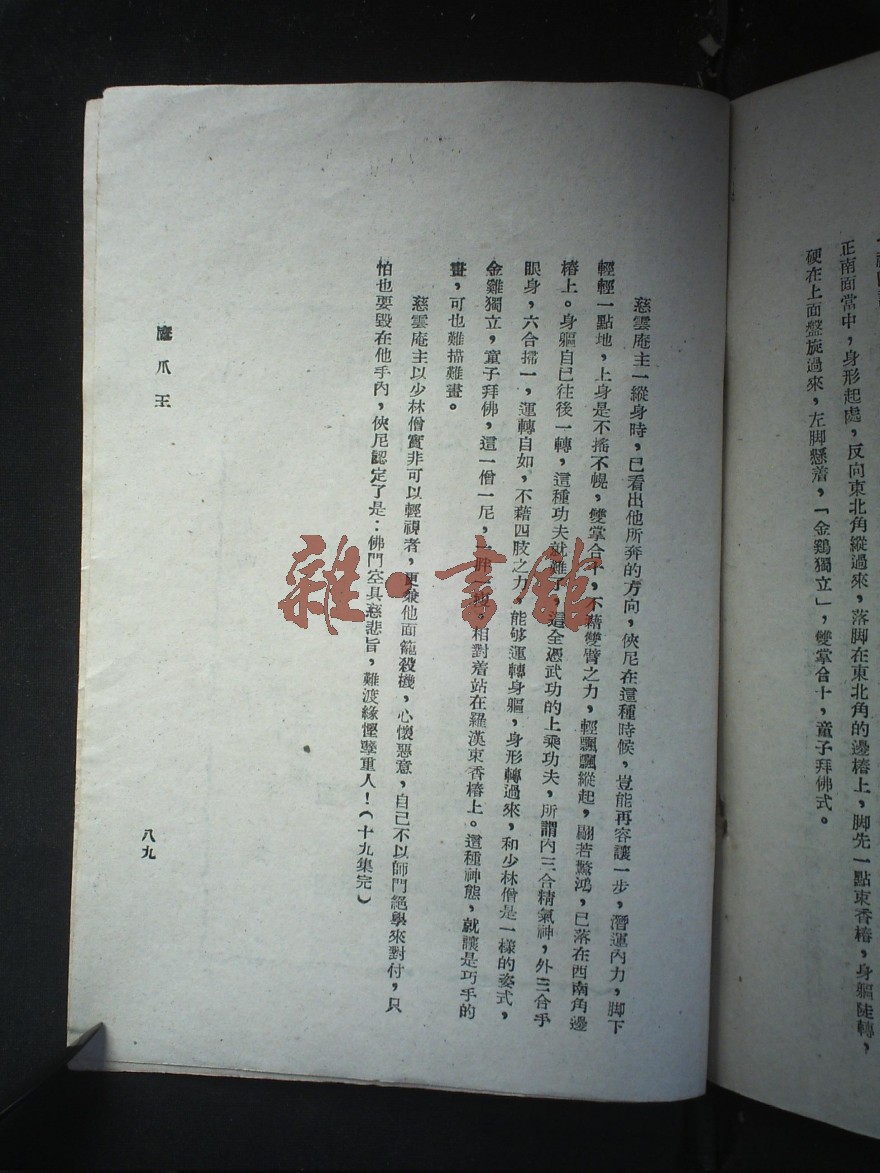 正南面當中，身形起處，反向東北角縱過來，落脚在東北角的邊樁上，脚先一點束香樁，身軀陡轉，
硬在上面盤旋過來，左脚懸着，「金鷄獨立」，雙掌合十，童子拜佛式。
慈雲庵主一縱身時，已看出他所奔的方向，俠尼在這種時候，豈能再容讓一步，潛運內力，脚下
輕輕一點地，上身是不搖不幌，雙掌合十，不藉雙臂之力，輕飄飄縱起，翩若驚鴻，已落在西南角邊
樁上。身軀自已往後一轉，這種功夫就難了，這全憑武功的上乘功夫，所謂內三合精氣神，外三合手
眼身，六合掃一，運轉自如，不藉四肢之力，能够運轉身軀，身形轉過來，和少林僧是一樣的姿式，
金雞獨立，童子拜佛，這一僧一尼，一胖一瘦，相對着站在羅漢束香樁上。這種神態，就讓是巧手的
畫，可也難描難畫。
慈雲庵主以少林僧實非可以輕視者，更兼他面籠殺機，心懷惡意，自己不以師門絕學來對付，只
怕也要毀在他手內，俠尼認定了是：佛門空具慈悲旨，難渡緣慳孽重人！（十九集完）
鷹爪王
八九
雜·書館